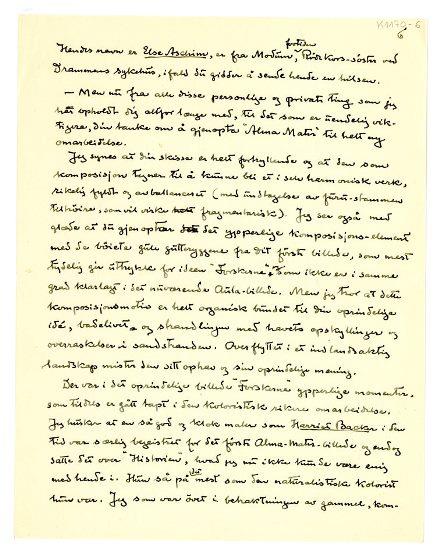 K1179-6
6
fortiden
Hendes navn er Else Aschim, er fra Modum, Røde Kors-søster ved
Drammens sykehus, ifald du gidder å sende hende en hilsen.
— Men nu fra alle disse personlige og private ting som jeg
har opholdt dig altfor længe med, til det som er uendelig vik-
tigere, din tanke om å gjenopta "Alma Mater" til helt ny
omarbeidelse.
Jeg synes at din skisse er helt fortryllende og at den som
komposisjon tegner til å kunne bli et i sitt harmonisk verk,
rikelig fyldt og avballanceret (med undtagelse av furu-stammen
tilhøire, som vil virke fragmentarisk). Jeg ser også med
glæde at du gjenoptar det ypperlige komposisjons-element
med de bøiete gutteryggene fra dit första billede, som mest
tydelig gir uttrykk for ideen "Forskerne", som ikke er i samme
grad klarlagt i det nuværende Aula-billede. Men jeg tror at dette
komposisjonsmotiv er helt organisk bundet til din oprindelige
idé, badelivet og strandlinjen med havets opskyllinger og
overraskelser i sandstranden. Overflyttet i et indlandsaktig
landskap mister den sitt ophav og sin oprindelige mening.
Der var i det oprindelige billede "Forskerne" ypperlige momenter,
som tildels er gått tapt i den koloristisk sikrere omarbeidelse.
Jeg husker at en så god og klok maler som Harriet Backer i den
tid var særlig begeistret for det första Alma-Mater-billede og endog
satte det over "Historien", hvad jeg nu ikke kunde være enig
med hende i. Hun så på det mest som den naturalistiske kolorist
hun var. Jeg som var övet i betraktningen av gammel, kom-